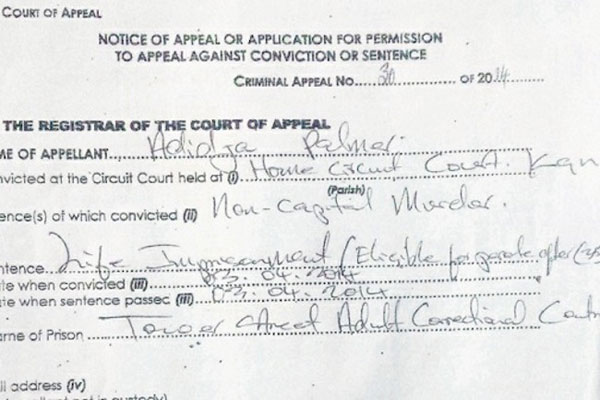 COURT OF APPEAL
NOTICE OF APPEAL OR APPLICATION FOR PERMISSION
TO APPEAL AGAINST CONVICTION OR SENTENCE
CRIMINAL APPEAL NO. 30 OF 2014
THE REGISTRAR OF THE COURT OF APPEAL
ME OF APPELLANT Adidja Palmer.
nvicted at the Circuit Court held at (i) Home Circuit Court. Kgn
(Parish)
ence(s) of which convicted (ii) Non-Capital Murder.
ntence Life Imprisonment / Eligible for parole after (35
te when convicted (iii) 03.04.2014
ate when sentence passec (iii) 03.04.2014
ame of Prison Tower Street Adult Correctional Centr
il address (iv)